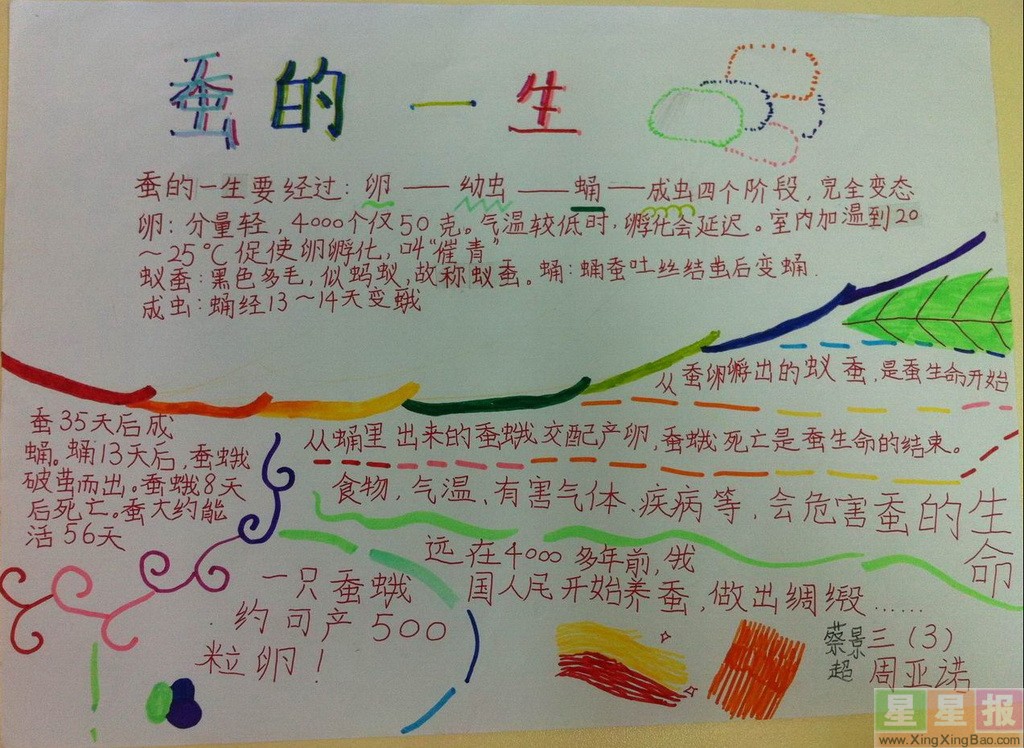 蚕的一生
蚕的一生要经过：卵——幼虫——蛹——成虫四个阶段，完全变态
卵：分量轻，4000个仅50克。气温较低时，孵化会延迟。室内加温到20
～25°C促使卵孵化，叫“催青”
蚁蚕：黑色多毛，似蚂蚁，故称蚁蚕。蛹：蛹蚕吐丝结茧后变蛹.
成虫：蛹经13～14天变蛾
从蚕卵孵出的蚁蚕，是蚕生命开始
蚕35天后成
蛹。蛹13天后，蚕蛾
破茧而出。蚕蛾8天
后死亡。蚕大约能
活56天
从蛹里出来的蚕蛾交配产卵，蚕蛾死亡是蚕生命的结束。
食物，气温、有害气体、疾病等，会危害蚕的生
命
远在4000多年前，我
国人民开始养蚕，做出绸缎……
一只蚕蛾
约可产500
粒卵！
蔡景超
三（3）
周亚诺
星星报
www.XingXingBao.com